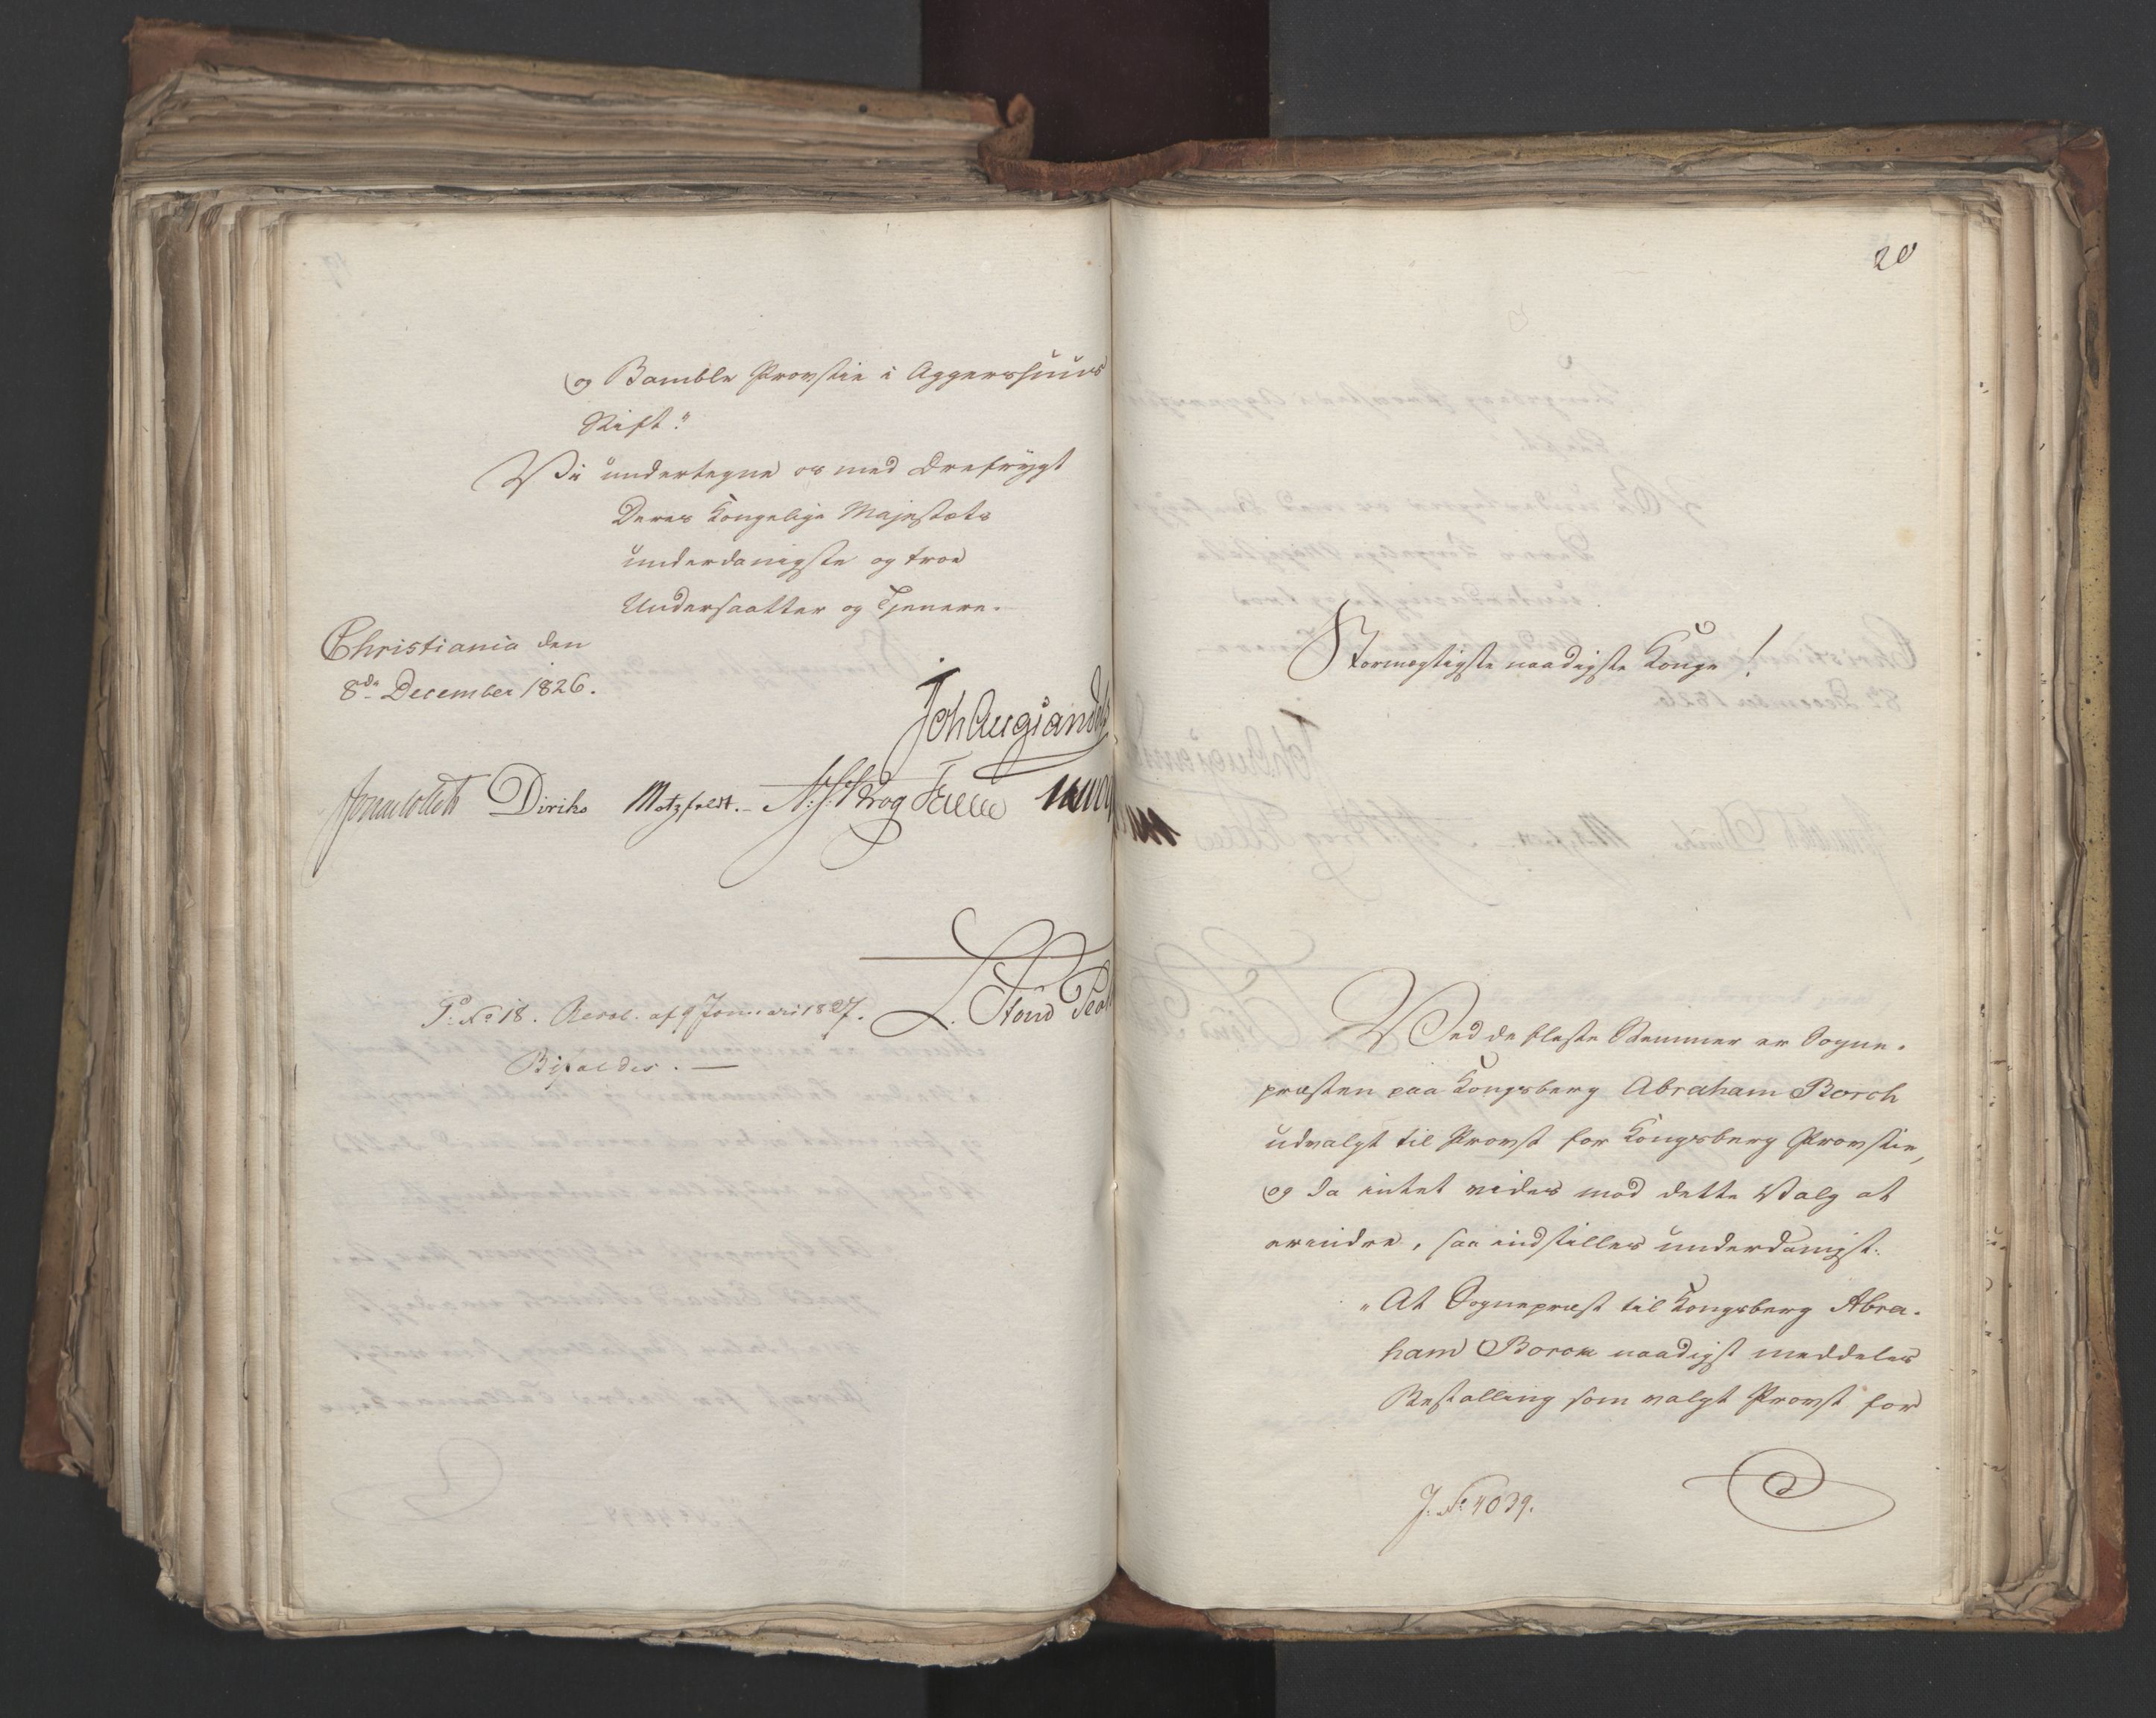 og Bamble Provstie i Aggershuus
Stift."
Vi undertegne os med Ærefrygt
Deres Kongelige Majestæts
underdanigste og troe
Undersaatter og Tjenere.
Christiania den
8de December 1826.
Joh Aug Sandels
Diriks Motzfeldt. Krog
P. No 18. Resol. af 9 Januari 1827.
L. Stoud
Bifaldes. —
20
Stormægtigste naadigste Konge!
Ved de fleste Stemmer er Sogne-
præsten paa Kongsberg Abraham Borch
udvalgt til Provst for Kongsberg Provstie,
og da intet vides mod dette Valg at
erindre, saa indstilles underdanigst:
"At Sognepræst til Kongsberg Abra-
ham Borch naadigst meddeles
Bestalling som valgt Provst for
J. No 4039.